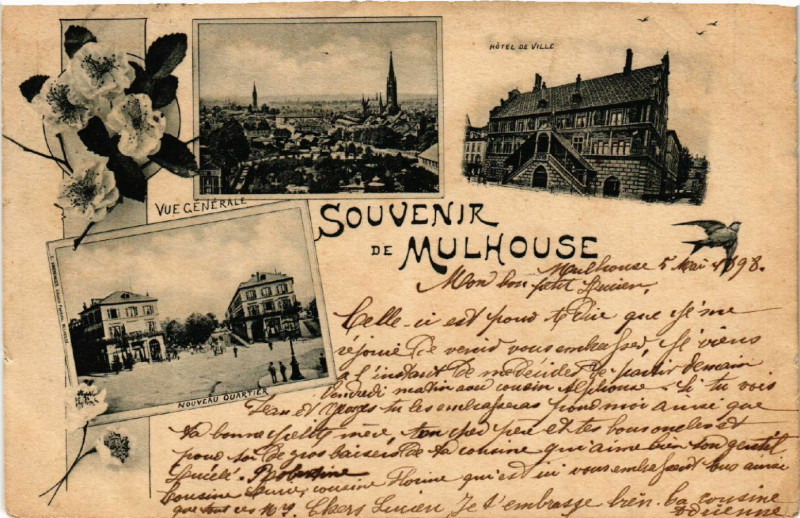 HÔTEL DE VILLE
VUE GÉNÉRALE
SOUVENIR
DE MULHOUSE
NOUVEAU QUARTIER
Mulhouse 5 Mai 1898.
Mon bon petit Lucien,
Celle-ci est pour te dire que je me
réjouie de venir vous embrasser, je viens
à l'instant de me décider de partir demain
Vendredi matin avec cousin Alphonse. Si tu vois
Jean et Georges tu les embrasseras pour moi ainsi que
ta bonne petite mère, ton cher père et tes bons oncles et
pour toi de gros baisers de ta cousine qui aime bien son gentil
Lucien.
Cousine cousine Florine qui est ici vous embrassent tous ainsi
que tout ces Chers Lucien Je t'embrasse bien. ta cousine